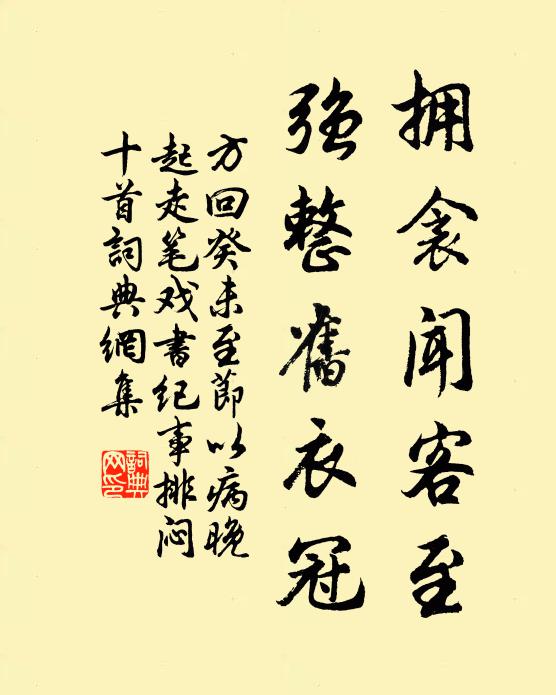 拥衾闻客至
强整舊衣冠
方回癸未至節以病晚
起走笔戏書纪事排闷
十首詞典網集
詞典网印